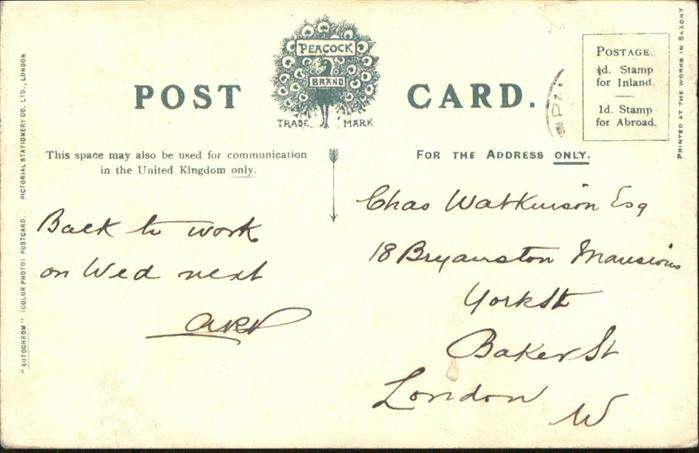 POST CARD.
PEACOCK
BRAND
TRADE MARK
POSTAGE.
½d. Stamp
for Inland.
1d. Stamp
for Abroad.
PRINTED AT THE WORKS IN SAXONY
"AUTOCHROM" (COLOR PHOTO) POSTCARD. PICTORIAL STATIONERY CO. LTD., LONDON
This space may also be used for communication
in the United Kingdom only.
FOR THE ADDRESS ONLY.
Back to work
on Wed next
Chas Watkinson Esq
18 Bryanston Mansions
York St
Baker St
London W